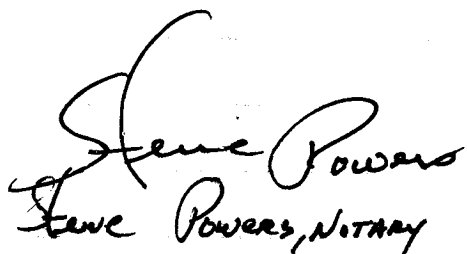 Steve Powers
Steve Powers, Notary